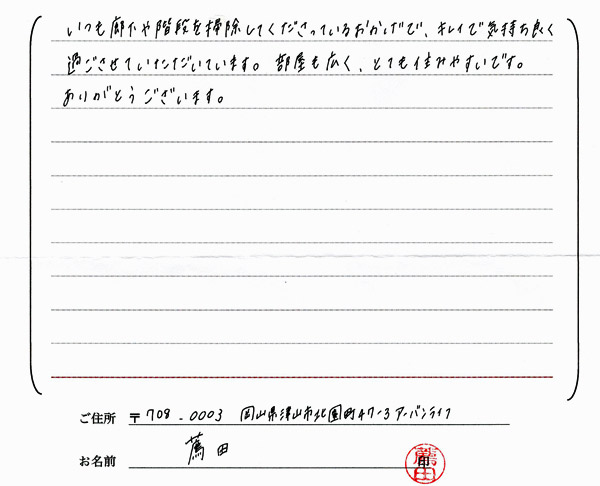 いつも廊下や階段を掃除してくださっているおかげで、キレイで気持ち良く
過ごさせていただいています。部屋も広く、とても住みやすいです。
ありがとうございます。
ご住所 〒708-0003 岡山県津山市北園町47-3 アーバンライフ
お名前 蔦田 印